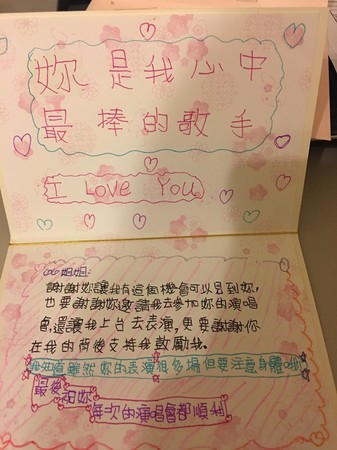 妳是我心中
最棒的歌手
I Love You
姐姐:
謝謝妳讓我有這個機會可以見到妳,
也要謝謝妳邀請我去參加妳的演唱
會,還讓我上台去表演,更要謝謝你
在我的背後支持我鼓勵我。
我知道雖然妳的表演很多場但要注意身體哦
最後祝妳
每次的演唱會都順利